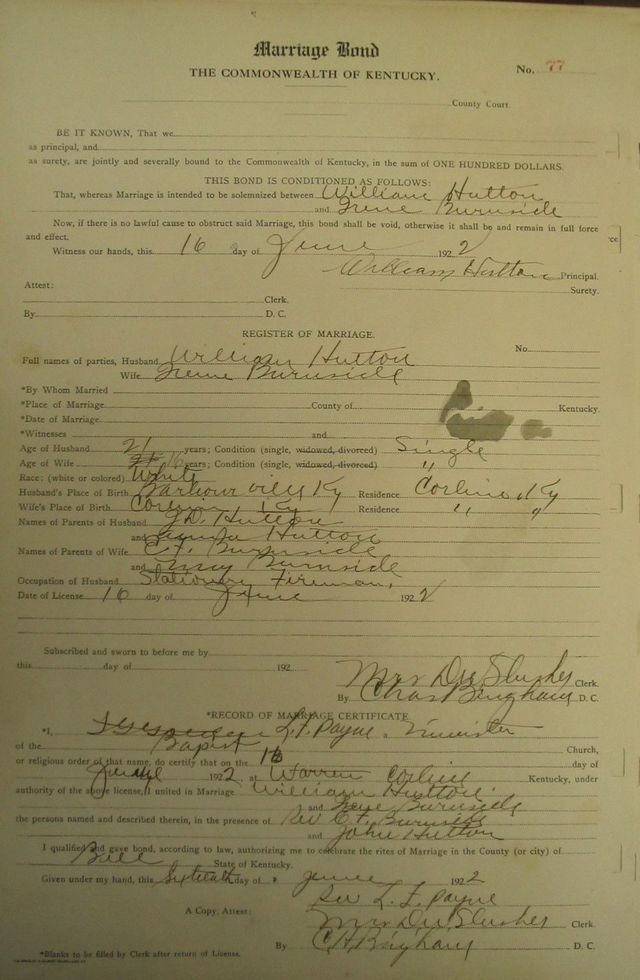 Marriage Bond
THE COMMONWEALTH OF KENTUCKY.
No. 77
County Court
BE IT KNOWN, That we
as principal, and
as surety, are jointly and severally bound to the Commonwealth of Kentucky, in the sum of ONE HUNDRED DOLLARS.
THIS BOND IS CONDITIONED AS FOLLOWS:
That, whereas Marriage is intended to be solemnized between William Hutton
and Irene Burnside
Now, if there is no lawful cause to obstruct said Marriage, this bond shall be void, otherwise it shall be and remain in full force
and effect.
Witness our hands, this 16 day of June 1922
William Hutton Principal.
Surety.
Attest:
Clerk.
By D. C.
REGISTER OF MARRIAGE.
No.
Full names of parties, Husband William Hutton
Wife Irene Burnside
*By Whom Married
*Place of Marriage County of Kentucky.
*Date of Marriage
*Witnesses and
Age of Husband 21 years; Condition (single, widowed, divorced) Single
Age of Wife 16 years; Condition (single, widowed, divorced) "
Race: (white or colored) White
Husband's Place of Birth Barbourville Ky Residence Corbin, Ky
Wife's Place of Birth Ky Residence " "
Names of Parents of Husband J.D. Hutton
and Hutton
Names of Parents of Wife C.F. Burnside
and Burnside
Occupation of Husband Stationary Fireman,
Date of License 16 day of June 1922
Subscribed and sworn to before me by
this day of 192
Mrs Slusher Clerk.
By Chas Bingham D. C.
*RECORD OF MARRIAGE CERTIFICATE
*I, L.F. Payne, minister
of the Baptist Church,
or religious order of that name, do certify that on the 16 day of
June 1922 at Warren Corbin Kentucky, under
authority of the above license, I united in Marriage William Hutton
and Irene Burnside
the persons named and described therein, in the presence of Rev C.F. Burnside
and John Hutton
I qualified and gave bond, according to law, authorizing me to celebrate the rites of Marriage in the County (or city) of
Bell State of Kentucky.
Given under my hand, this Sixteenth day of June 1922
Rev L. F. Payne
A Copy, Attest: Mrs Slusher Clerk.
By C H Bingham D. C.
*Blanks to be filled by Clerk after return of License.